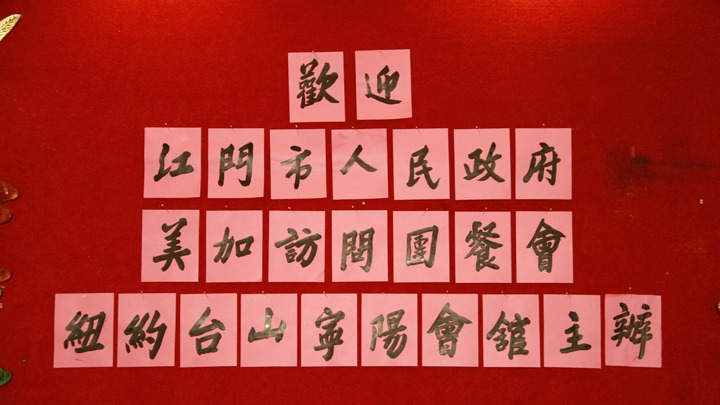 歡迎
江門市人民政府
美加訪問團餐會
紐約台山寧陽會舘主辦